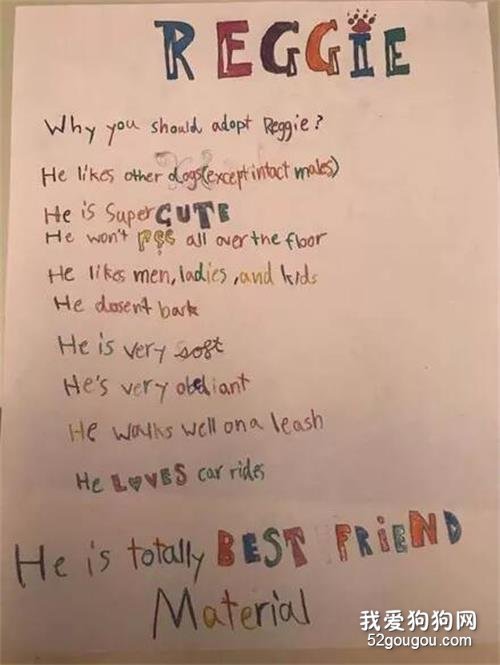 REGGIE
Why you should adopt Reggie?
He likes other dogs(except intact males)
He is Super CUTE
He won't pee all over the floor
He likes men, ladies, and kids
He dosent bark
He is very soft
He's very obediant
He walks well on a leash
He LOVES car rides
He is totally BEST FRIEND
Material
我爱狗狗网
52gougou.com